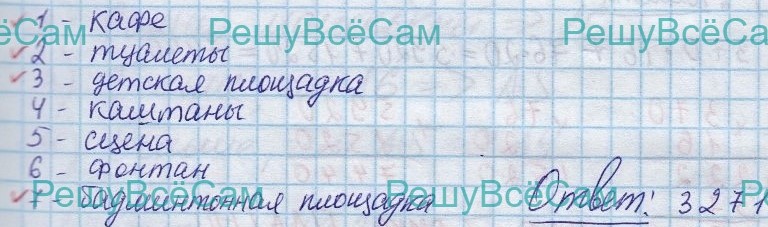 1 - кафе
РешуВсёСам РешуВсёСам РешуВсёСам
2 - туалеты
3 - детская площадка
4 - каштаны
5 - сцена
6 - фонтан
7 - бадминтонная площадка Ответ: 3271
РешуВсёСам РешуВсёСам Р